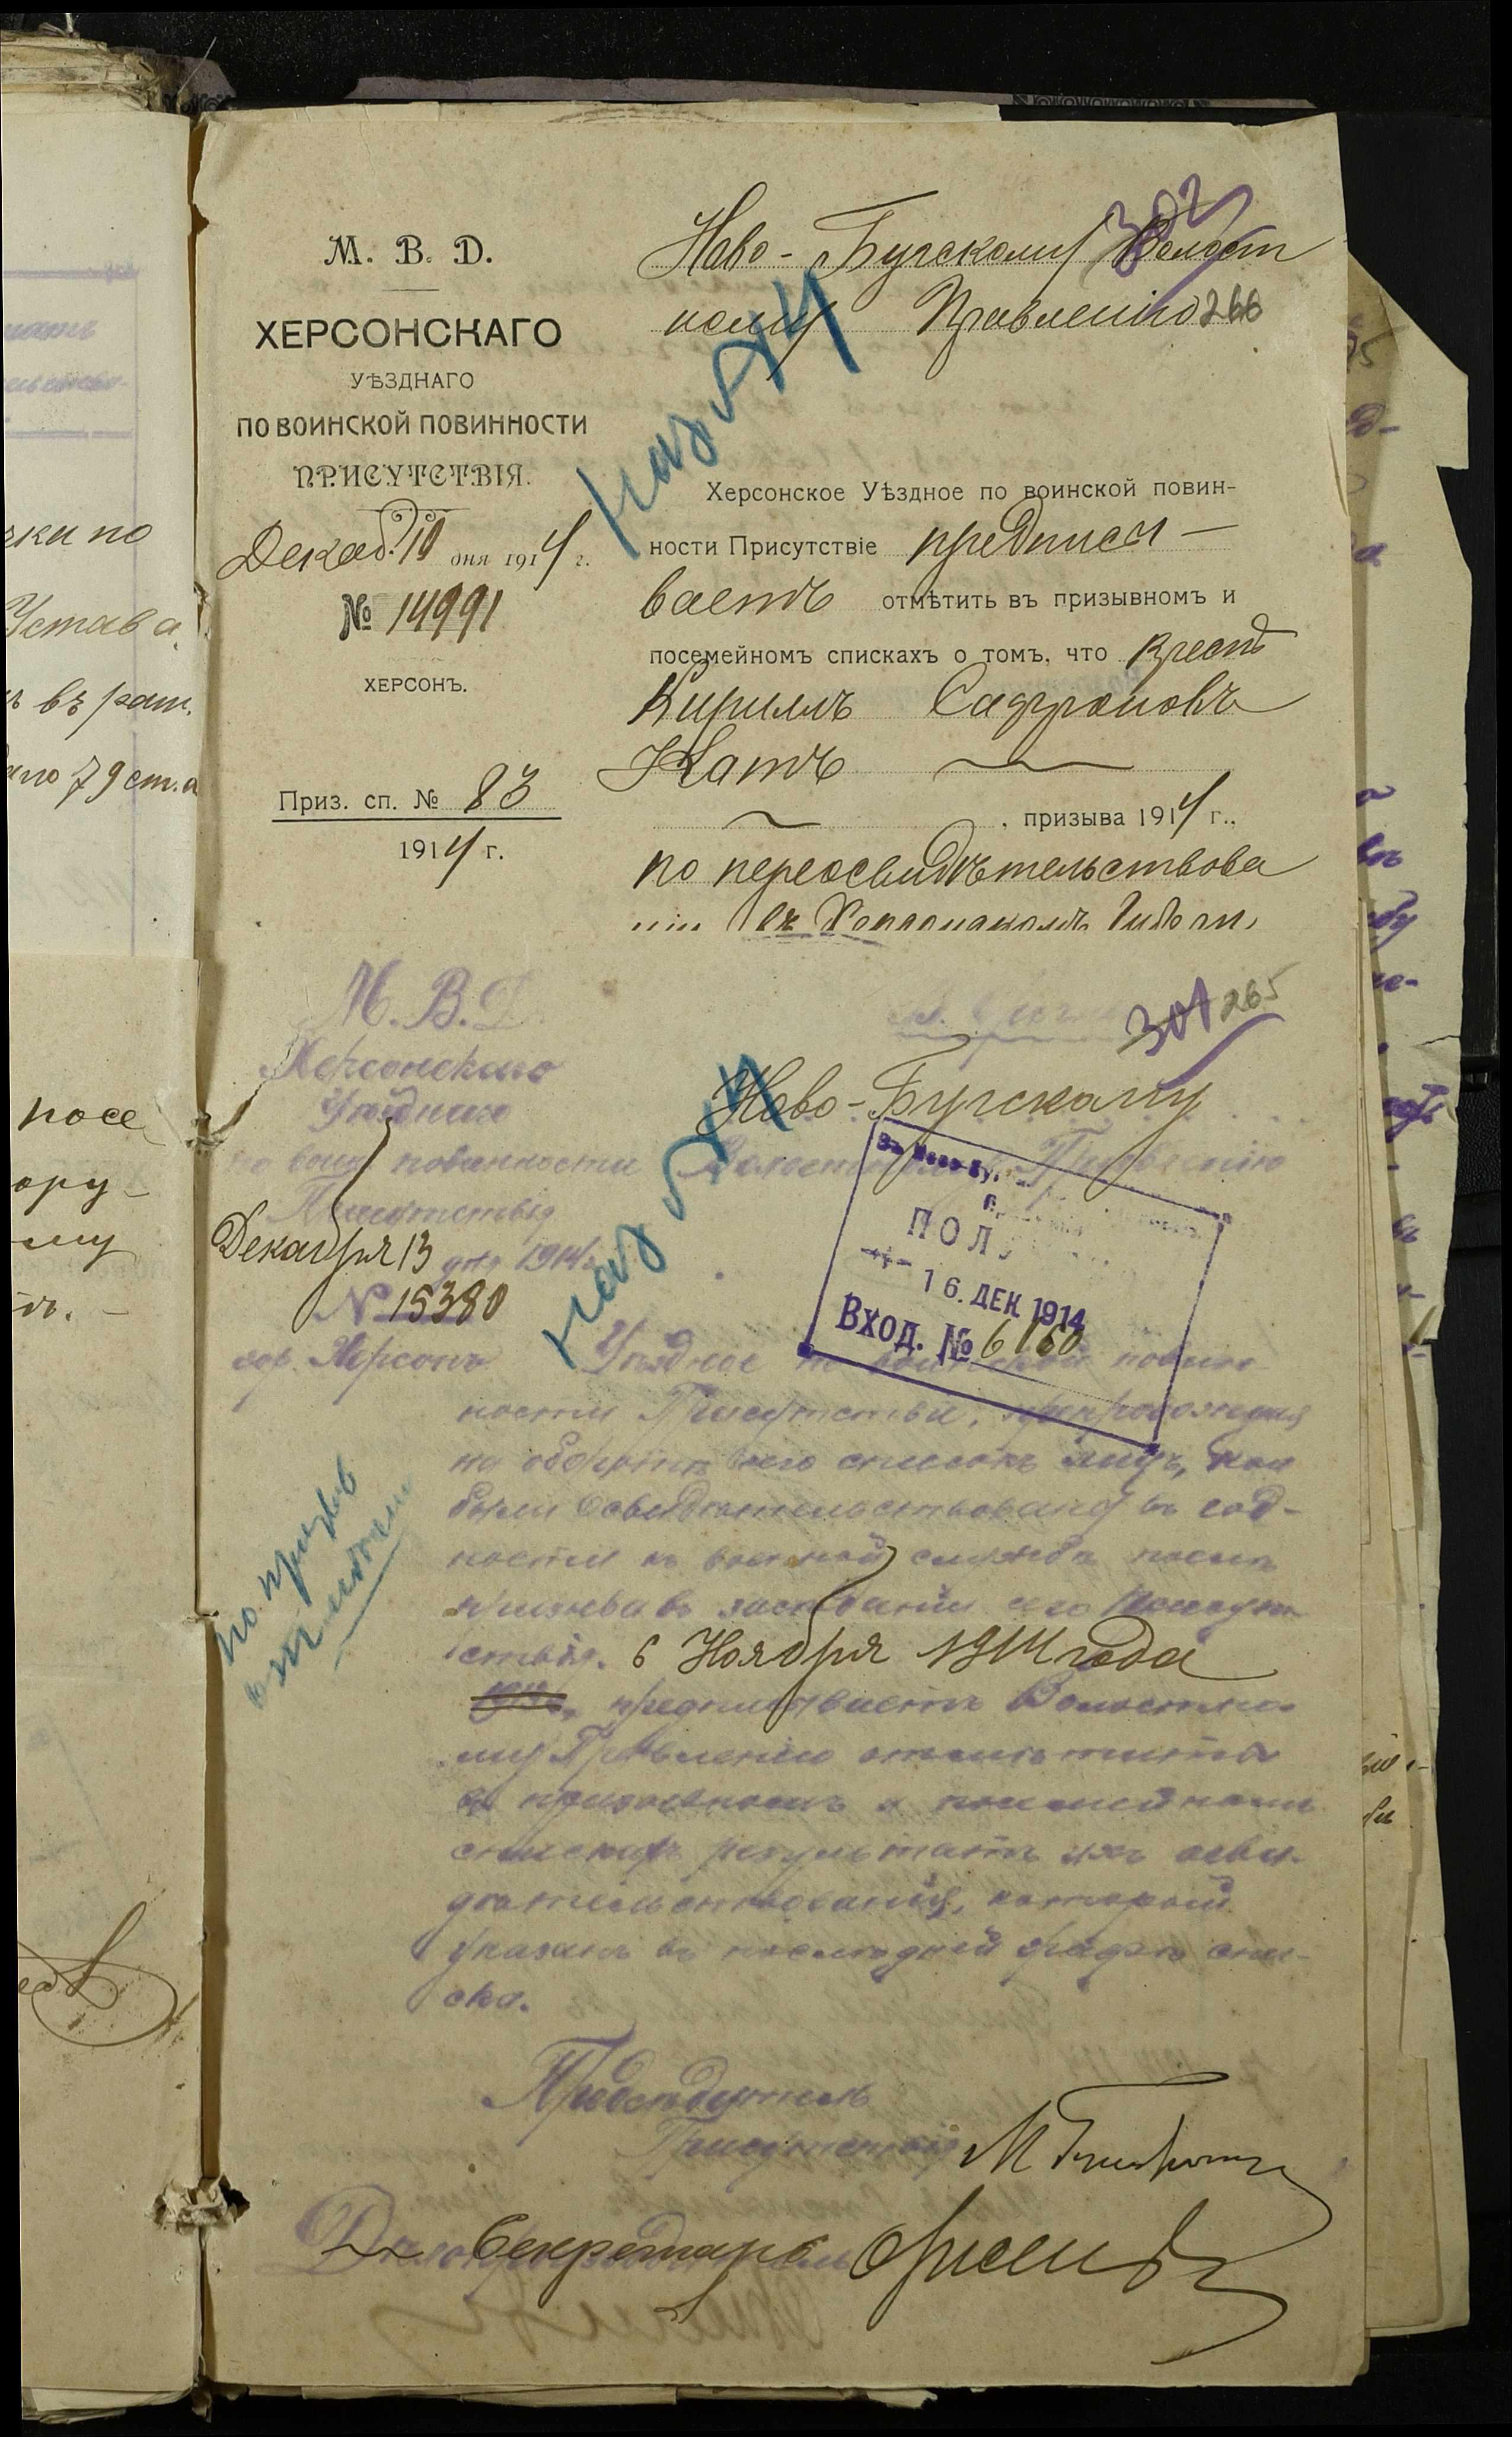 302
М. В. Д.
ХЕРСОНСКАГО
УѢЗДНАГО
ПО ВОИНСКОЙ ПОВИННОСТИ
ПРИСУТСТВІЯ.
Декаб. 10 дня 1914 г.
№ 14991
ХЕРСОНЪ.
Приз. сп. № 83
1914 г.
Ново-Бугскому Волост
ному Правленію 266
Херсонское Уѣздное по воинской повин-
ности Присутствіе предписы-
ваетъ отмѣтить въ призывномъ и
посемейномъ спискахъ о томъ, что крест
Кириллъ Сафроновъ
Катъ
, призыва 1914 г.,
по переосвидѣтельствова
ніи въ Херсонскомъ
301 265
М. В. Д.
Херсонскаго
Уѣзднаго
по воин повинности
Присутствія
Декабря 13 дня 1914
№ 15380
гор. Херсонъ
Ново-Бугскому
Волостному Правленію
ПОЛ
16. ДЕК 1914
Вход. № 6160
Уѣздное по воинской повин
ности Присутствіе, препровождая
на оборотѣ сего списокъ лицъ, кои
были освидѣтельствованы въ год-
ности къ военной службѣ послѣ
призыва въ засѣданіи его Присут
ствія. 6 Ноября 1914 года
предписываетъ Волостно-
му Правленію отмѣтить
въ призывномъ и посемейномъ
спискахъ результатъ ихъ осви-
дѣтельствованія, который
указанъ въ послѣдней графѣ спи-
ска.
по призыв
отмѣтки
Предсѣдатель
Присутствія
Секретарь
чки по
Устава.
въ рат.
79 ст. а
посе
ору-
му